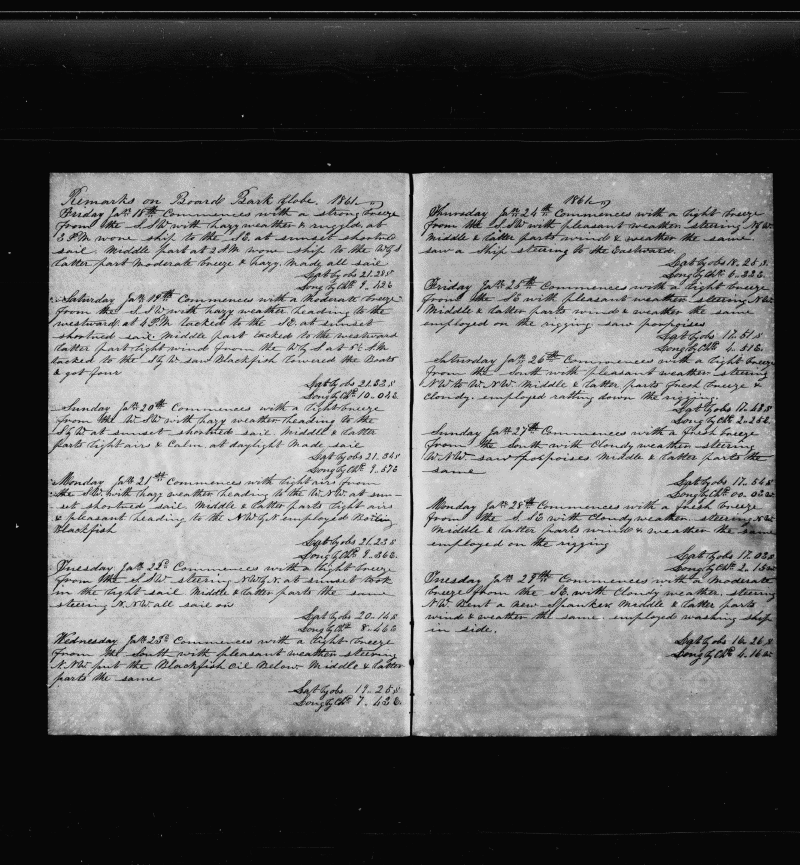 Remarks on Board Bark Globe. 1861
Friday Jan 18th Commences with a strong breeze
from the S.SW with hazy weather & rugged, at
3 PM wore ship to the SE. at sunset shortned
sail. Middle part at 2 AM wore ship to the W
latter part Moderate breeze & hazy. Made all sail
Lat by obs 21.28 S
Long by Chr 9.42 E
Saturday Jan 19th Commences with a Moderate breeze
from the S.SW with hazy weather heading to the
westward. at 4 PM tacked to the SE. at sunset
shortned sail. Middle part tacked to the westward
latter part light wind from the W by S at AM
tacked to the S by W saw Blackfish lowered the Boats
& got four
Lat by obs 21.33 S
Long by Chr 10.04 E
Sunday Jan 20th Commences with a light breeze
from the W SW with hazy weather heading to the
S by W at sunset shortned sail. Middle & latter
parts light airs & Calm. at daylight Made sail
Lat by obs 21.36 S
Long by Chr 9.57 E
Monday Jan 21st Commences with light airs from
the SW. with hazy weather heading to the W.NW. at sun-
-set shortned sail. Middle & latter parts light airs
& pleasant heading to the NW by N. employed Boiling
Blackfish
Lat by obs 21.23 S
Long by Chr 9.36 E
Tuesday Jan 22d Commences with a light breeze
from the S.SW steering NW by N. at sunset took
in the light sail Middle & latter parts the same
steering N.NW all sail on
Lat by obs 20.14 S
Long by Chr 8.46 E
Wednesday Jan 23d Commences with a light breeze
from the South with pleasant weather steering
N.NW put the Blackfish oil Below Middle & latter
parts the same
Lat by obs 19.25 S
Long by Chr 7.42 E
1861
Thursday Jan 24th Commences with a light breeze
from the S.SE with pleasant weather steering NW
Middle & latter parts wind & weather the same
saw a Ship steering to the Eastward
Lat by obs 18.25 S
Long by Chr 6.22 E
Friday Jan 25th Commences with a light breeze
from the SE with pleasant weather steering NW
Middle & latter parts wind & weather the same
employed on the rigging saw porpoises
Lat by obs 17.51 S
Long by Chr 4.51 E
Saturday Jan 26th Commences with a light breeze
from the South with pleasant weather steering
NW to W.NW. Middle & latter parts fresh breeze &
cloudy. employed ratling down the rigging.
Lat by obs 17.48 S
Long by Chr 2.25 E
Sunday Jan 27th Commences with a fresh breeze
from the South with Cloudy weather steering
W.NW. saw porpoises Middle & latter parts the
same
Lat by obs 17.54 S
Long by Chr 00.02
Monday Jan 28th Commences with a fresh breeze
from the S.SE with Cloudy weather steering NW
Middle & latter parts wind & weather the same
employed on the rigging
Lat by obs 17.03 S
Long by Chr 2.15 W
Tuesday Jan 29th Commences with a Moderate
breeze from the SE. with Cloudy weather. steering
NW. Bent a new Spanker Middle & latter parts
wind & weather the same. employed washing ship
in side.
Lat by obs 16.26 S
Long by Chr 4.16 W